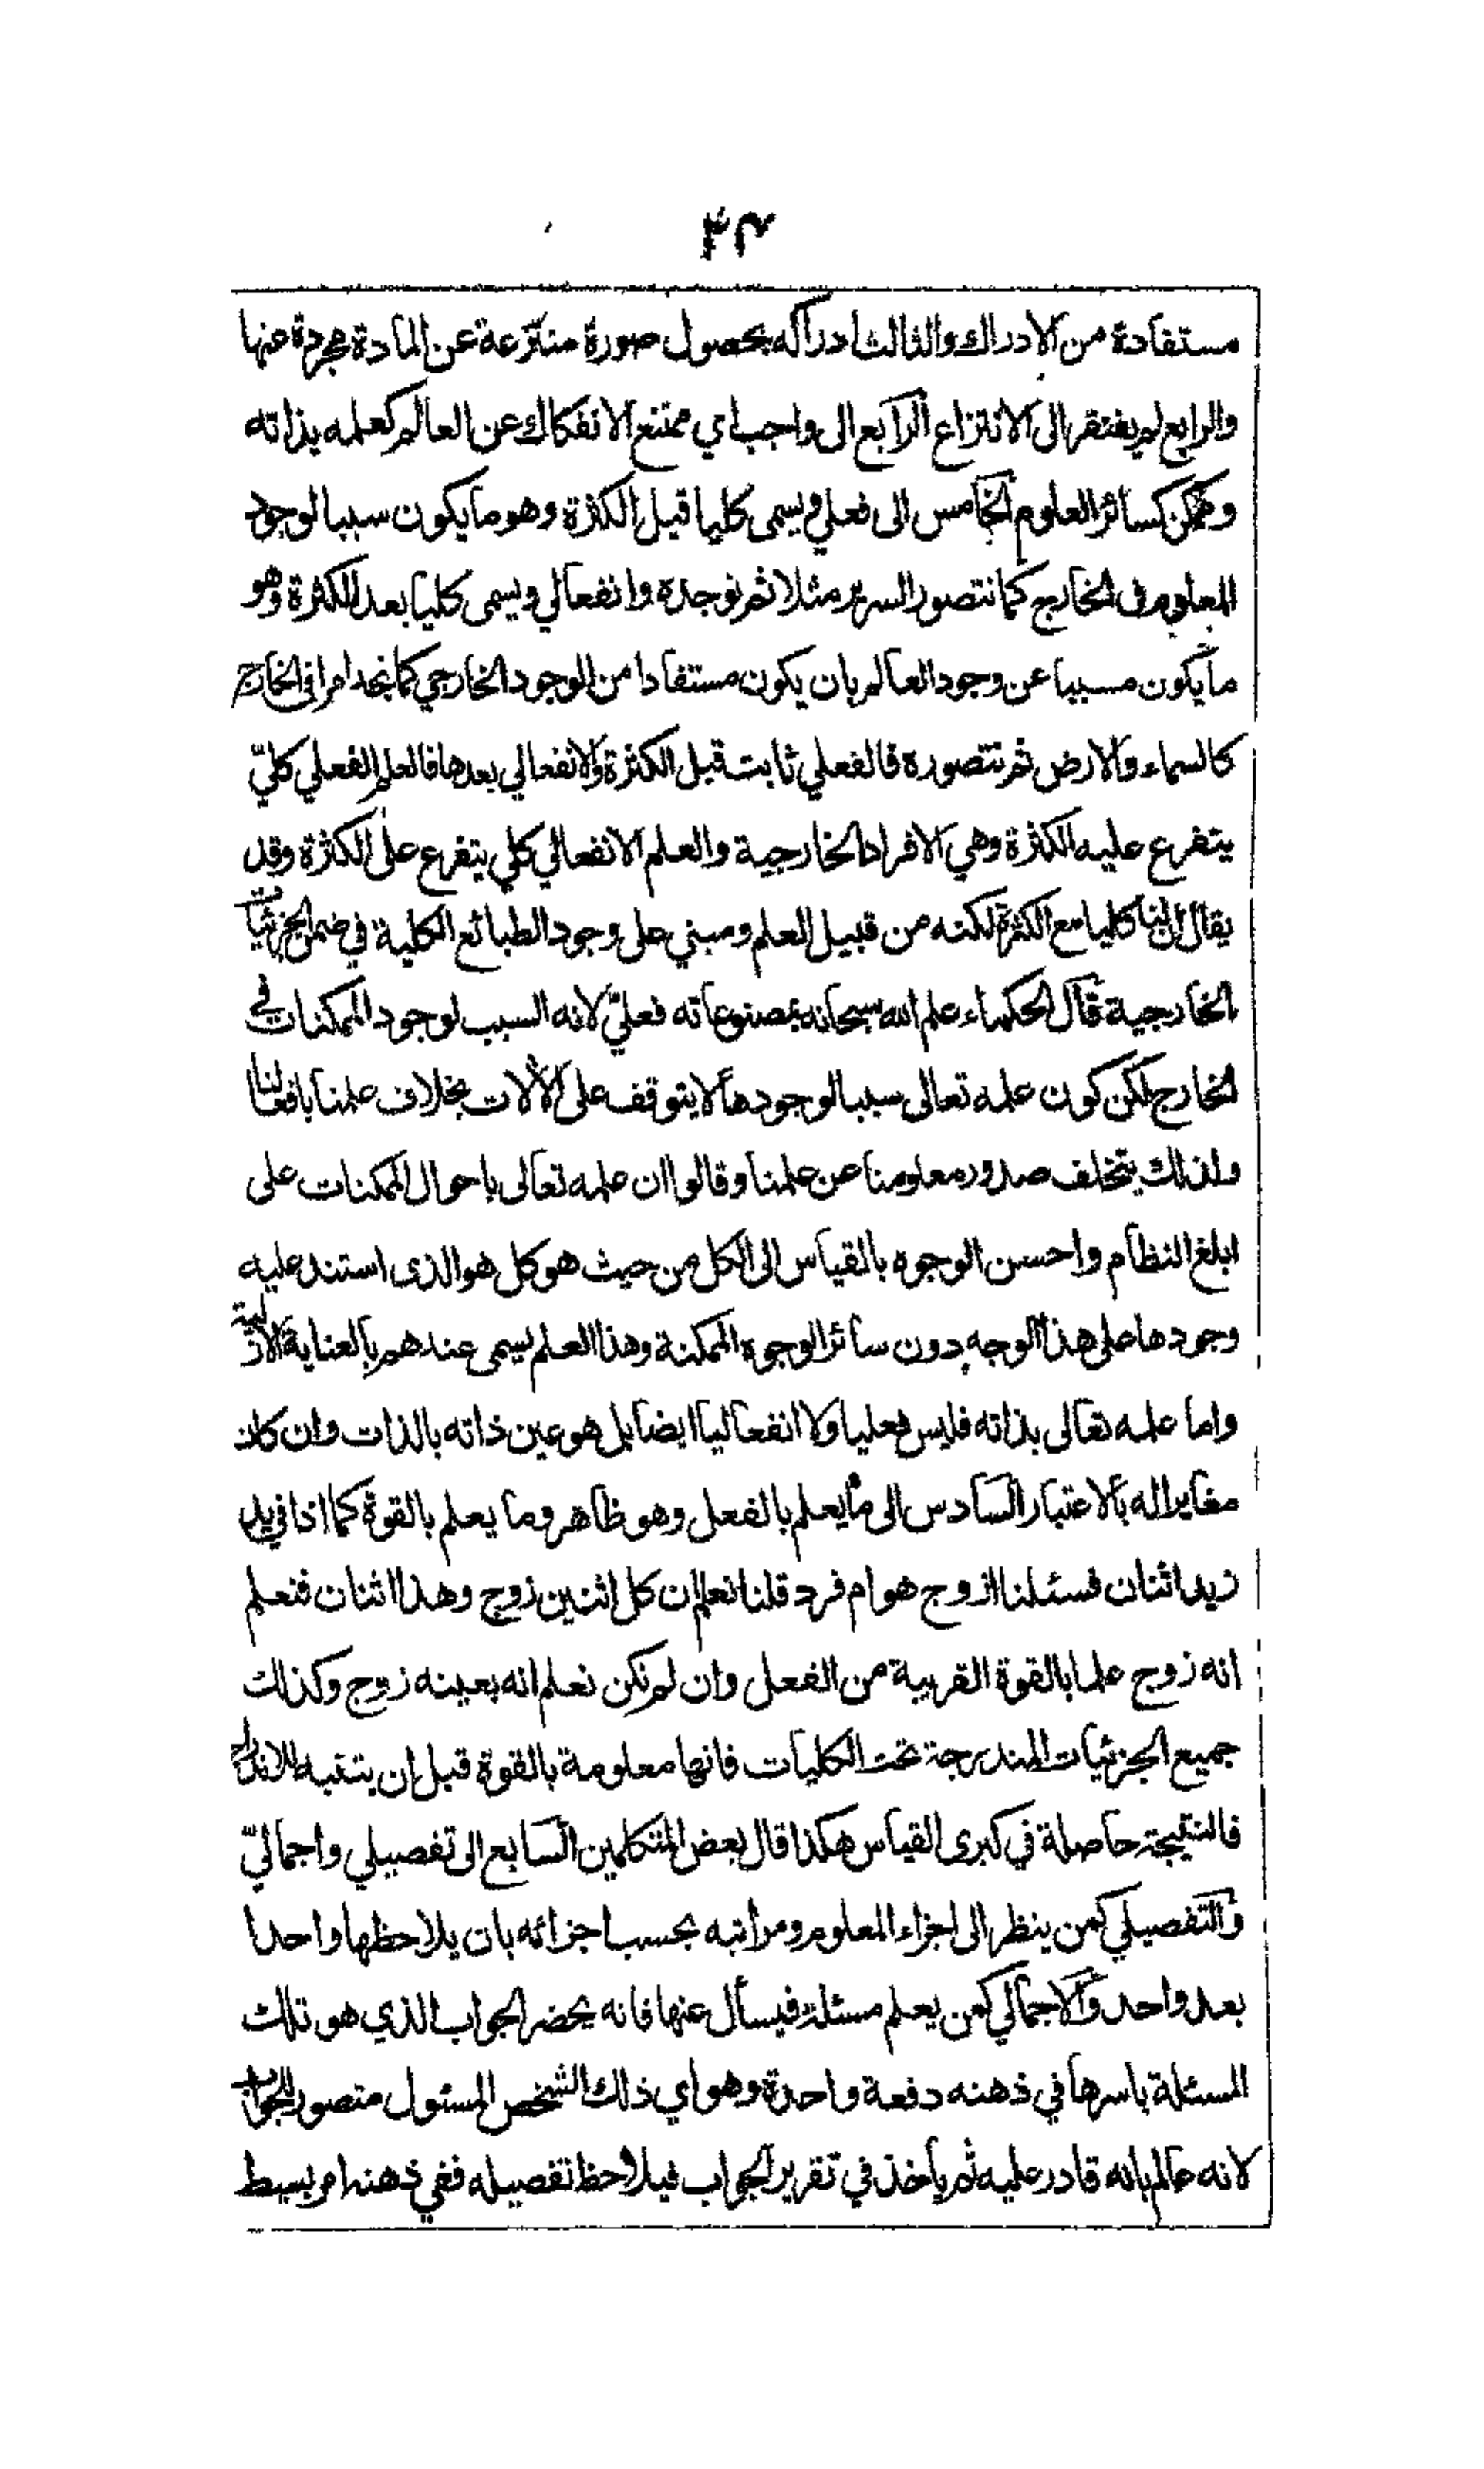 ٣٣
مستفادة من الادراك والثالث ادراكه بحصول صورة منتزعة عن المادة مجردة عنها
والرابع لم يفتقر الى الانتزاع الرابع الى واجب اي ممتنع الانفكاك عن العالم كعلمه بذاته
وممكن كسائر العلوم الخامس الى فعلي ويسمى كليا قبل الكثرة وهو ما يكون سببا لوجود
المعلوم في الخارج كما نتصور السرير مثلا ثم نوجده وانفعالي ويسمى كليا بعد الكثرة وهو
ما يكون مسببا عن وجود العالم بان يكون مستفادا من الوجود الخارجي كما نجد امرا في الخارج
كالسماء والارض ثم نتصوره فالفعلي ثابت قبل الكثرة والانفعالي بعدها فالعلم الفعلي كليّ
يتفرع عليه الكثرة وهي الافراد الخارجية والعلم الانفعالي كلي يتفرع على الكثرة وقد
يقال ان لنا كليا مع الكثرة لكنه من قبيل العلم ومبني على وجود الطبائع الكلية في ضمن الجزئيات
الخارجية قال الحكماء علم الله سبحانه بمصنوعاته فعليّ لانه السبب لوجود الممكنات في
الخارج لكن كون علمه تعالى سببا لوجودها لا يتوقف على الآلات بخلاف علمنا بافعالنا
ولذلك يتخلف صدور معلومنا عن علمنا وقالوا ان علمه تعالى باحوال الممكنات على
ابلغ النظام واحسن الوجوه بالقياس الى الكل من حيث هو كل هو الذى استند عليه
وجودها على هذا الوجه دون سائر الوجوه الممكنة وهذا العلم يسمى عندهم بالعناية الازلية
واما علمه تعالى بذاته فليس فعليا ولا انفعاليا ايضا بل هو عين ذاته بالذات وان كان
مغايرا له بالاعتبار السادس الى ما يعلم بالفعل وهو ظاهر وما يعلم بالقوة كما اذا في يد
زيد اثنان فسئلنا ازوج هو ام فرد قلنا نعلم ان كل اثنين زوج وهذا اثنان فنعلم
انه زوج علما بالقوة القريبة من الفعل وان لم نكن نعلم انه بعينه زوج وكذلك
جميع الجزئيات المندرجة تحت الكليات فانها معلومة بالقوة قبل ان يتنبه للاندراج
فالنتيجة حاصلة في كبرى القياس هكذا قال بعض المتكلمين السابع الى تفصيلي واجماليّ
والتفصيلي كمن ينظر الى اجزاء المعلوم ومراتبه بحسب اجزائه بان يلاحظها واحدا
بعد واحد والاجمالي كمن يعلم مسئلة فيسأل عنها فانه يحضر الجواب الذي هو تلك
المسئلة باسرها في ذهنه دفعة واحدة وهو اي ذلك الشخص المسئول متصور للجواب
لانه عالم بانه قادر عليه ثم ياخذ في تقرير الجواب فيلاحظ تفصيله ففي ذهنه امر بسيط